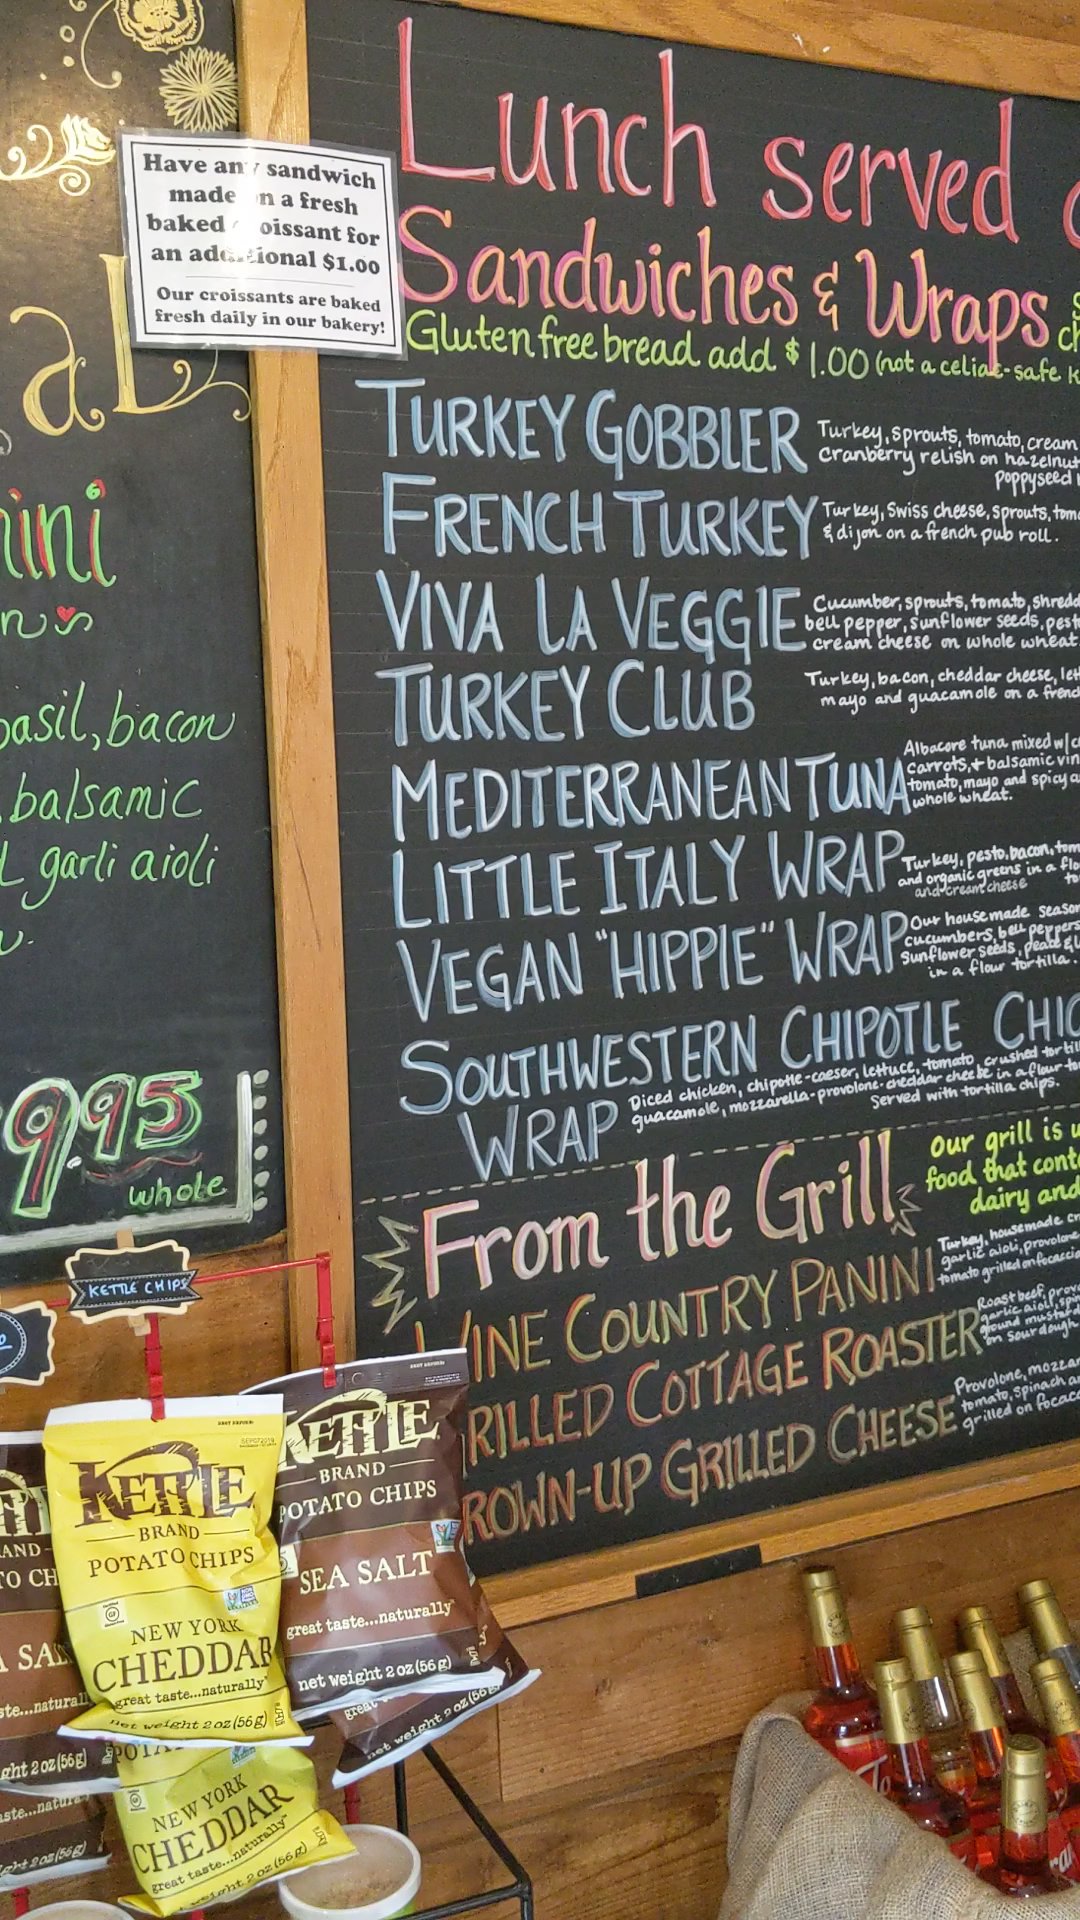 Have any sandwich
made on a fresh
baked croissant for
an additional $1.00
Our croissants are baked
fresh daily in our bakery!
basil, bacon
balsamic
garli aioli
9.95
whole
Lunch served
Sandwiches & Wraps
Gluten free bread add $1.00 (not a celiac-safe
TURKEY GOBBLER
Turkey, sprouts, tomato, cream
cranberry relish on hazelnut
poppyseed
FRENCH TURKEY
Turkey, Swiss cheese, sprouts, tom
& dijon on a french pub roll.
VIVA LA VEGGIE
Cucumber, sprouts, tomato, shredd
bell pepper, sunflower seeds, pest
cream cheese on whole wheat
TURKEY CLUB
Turkey, bacon, cheddar cheese, let
mayo and guacamole on a french
MEDITERRANEAN TUNA
Albacore tuna mixed w/
carrots, + balsamic vin
tomato, mayo and spicy
whole wheat.
LITTLE ITALY WRAP
Turkey, pesto, bacon, tom
and organic greens in a flo
and cream cheese
VEGAN "HIPPIE" WRAP
Our housemade season
cucumbers, bell peppers
sunflower seeds,
in a flour tortilla.
SOUTHWESTERN CHIPOTLE CHIC
WRAP
Diced chicken, chipotle-caeser, lettuce, tomato, crushed tortill
guacamole, mozzarella-provolone-cheddar cheese in a flour to
Served with tortilla chips.
From the Grill
Our grill is u
food that cont
dairy and
WINE COUNTRY PANINI
Turkey, housemade cr
garlic aioli, provolone
tomato grilled on focaccia
RILLED COTTAGE ROASTER
Roast beef, prov
garlic aioli,
ground mustard
on sourdough
ROWN-UP GRILLED CHEESE
Provolone, mozzar
tomato, spinach a
grilled on focacc
KETTLE CHIPS
KETTLE
BRAND
POTATO CHIPS
NEW YORK
CHEDDAR
great taste...naturally
net weight 2 oz (56g)
KETTLE
BRAND
POTATO CHIPS
SEA SALT
great taste...naturally
net weight 2 oz (56g)
great
net weight 2 oz (56g)
NEW YORK
CHEDDAR
great taste...naturally
weight 2 oz (56g)